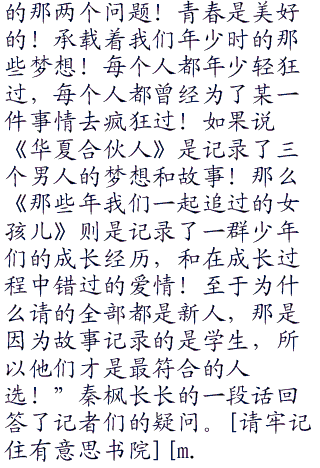 的那两个问题！青春是美好
的！承载着我们年少时的那
些梦想！每个人都年少轻狂
过，每个人都曾经为了某一
件事情去疯狂过！如果说
《华夏合伙人》是记录了三
个男人的梦想和故事！那么
《那些年我们一起追过的女
孩儿》则是记录了一群少年
们的成长经历，和在成长过
程中错过的爱情！至于为什
么请的全部都是新人，那是
因为故事记录的是学生，所
以他们才是最符合的人
选！”秦枫长长的一段话回
答了记者们的疑问。[请牢记
住有意思书院][m.